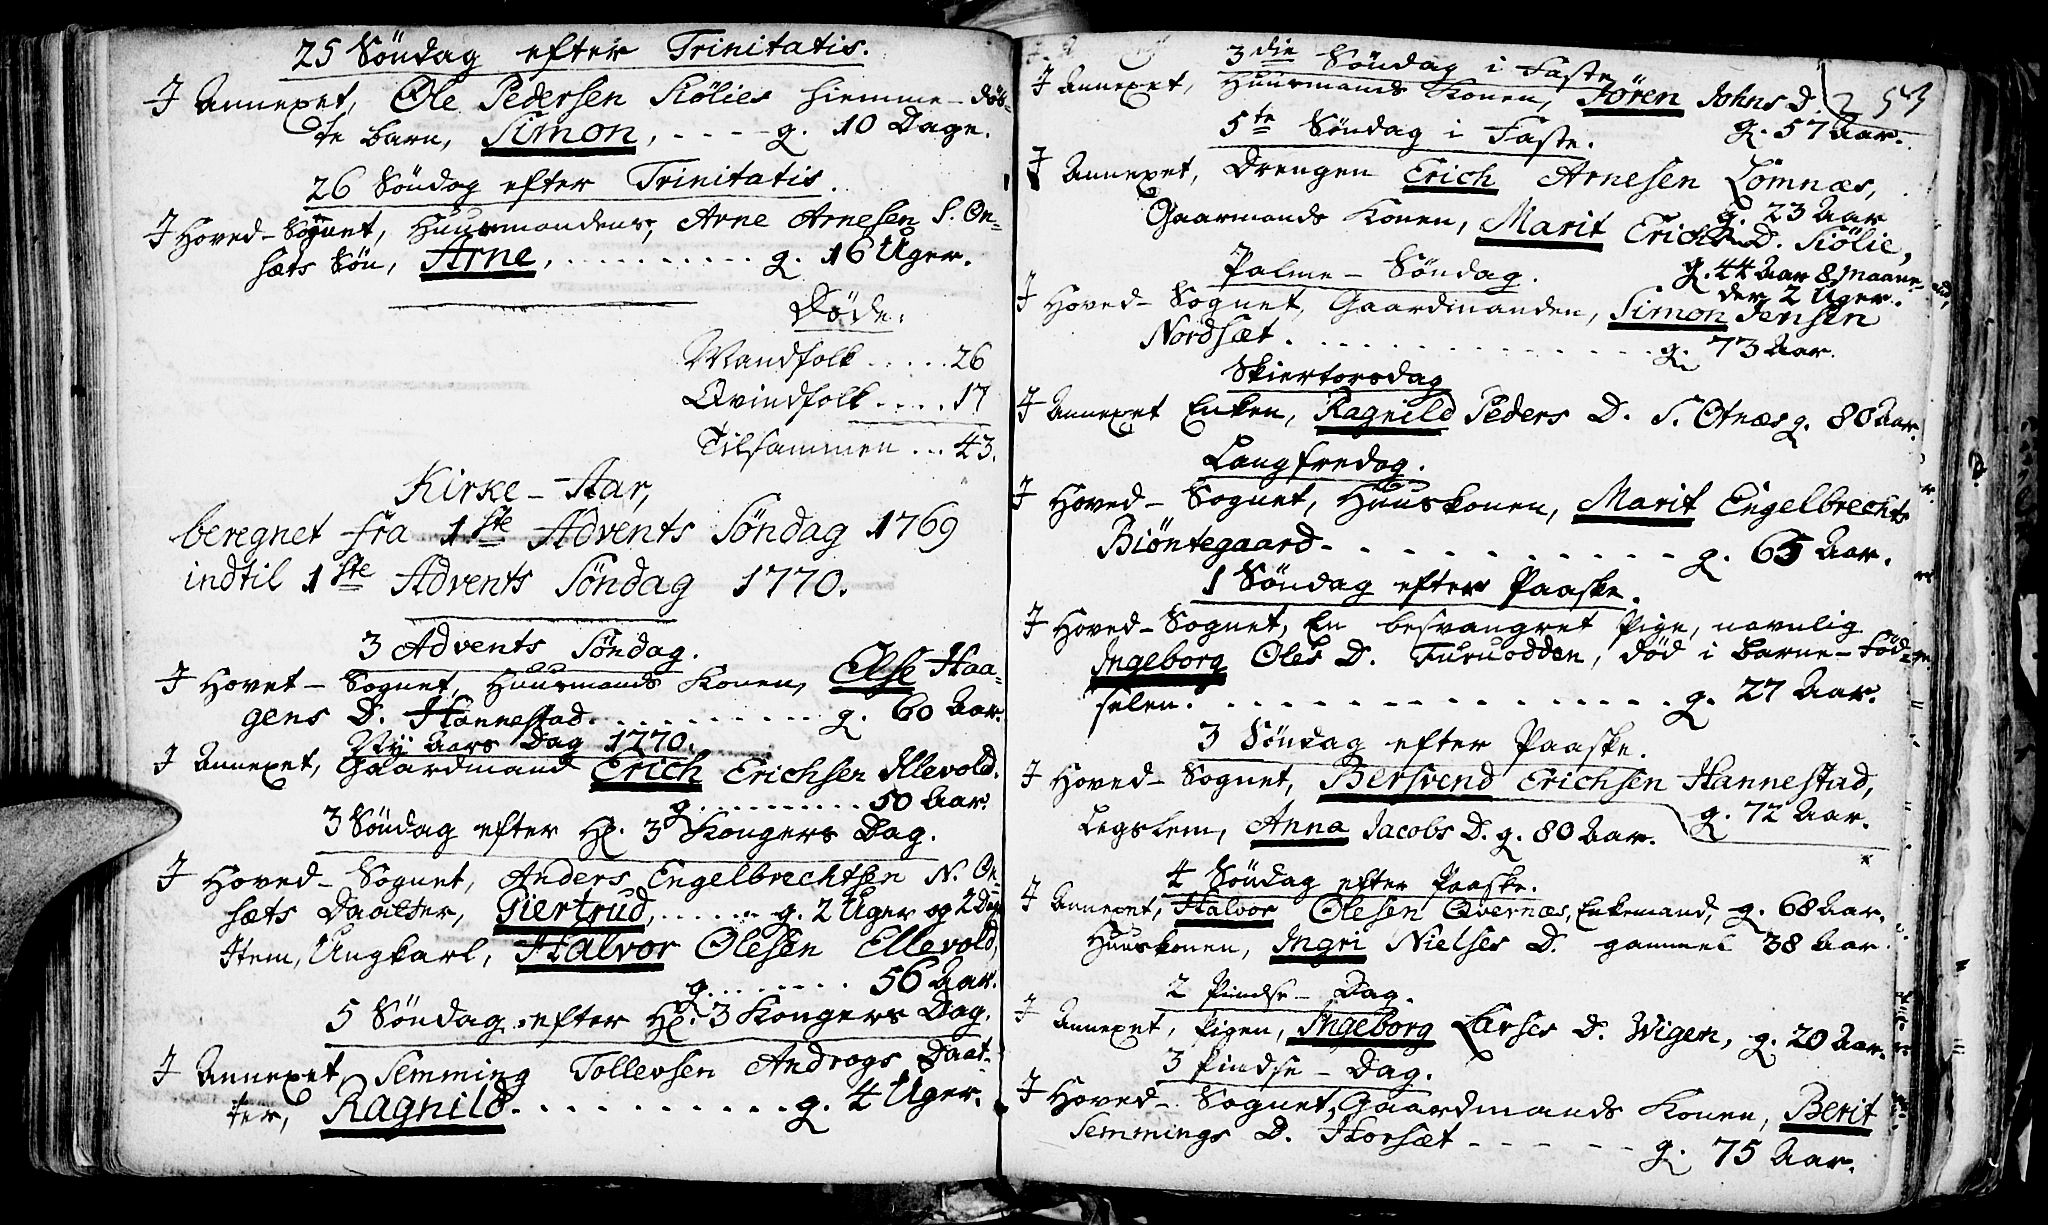 25 Söndag efter Trinitatis.
I Annexet, Ole Pedersen Kiölies hiemme-döb-
te barn, Simon, - - - - g. 10 Dage.
26 Söndag efter Trinitatis.
I Hoved-Sognet, Huusmandens, Arne Arnesen S. On-
sæts Sön, Arne, . . . . . . . . . . g. 16 Uger.
Döde:
Mandfolk . . . . . 26
Qvindfolk . . . . 17
Tilsammen ... 43.
Kirke-Aar,
beregnet fra 1ste Advents Söndag 1769
indtil 1ste Advents Söndag 1770.
3 Advents Söndag.
I Hovet-Sognet, Huusmands Konen, Else Haa-
gens D. Hannestad . . . . . . . . . . g. 60 Aar.
Ny Aars Dag 1770.
I Annexet, Gaardmand Erich Erichsen Illevold.
g. . . . . . . . . . . 50 Aar.
3 Söndag efter H. 3 Kongers Dag.
I Hoved-Sognet, Anders Engelbrechtsen N. On-
sæts Daatter, Giertrud, . . . . . . g. 2 Uger og 2 Dage
Item, Ungkarl, Halvor Olesen Ellevold,
g. . . . . . . . 56 Aar.
5 Söndag efter H. 3 Kongers Dag.
I Annexet Semming Tollevsen Androgs Daat-
ter, Ragnild . . . . . . . . . . . g. 4 Uger.
253
3die Söndag i Faste
I Annexet, Huusmands Konen, Sören Johns D.
g. 57 Aar.
5te Söndag i Faste.
I Annexet, Drengen Erich Arnesen Lomnæs,
g. 23 Aar
Gaarmands Konen, Marit Erichs D. Kiölie,
g. 44 Aar 8 Maane-
der 2 Uger.
Palme-Söndag.
I Hoved-Sognet, Gaardmanden, Simon Jensen
Nordsæt . . . . . . . . . . . . . . . g. 73 Aar.
Skiertorsdag
I Annexet Enken, Ragnild Peders D. S. Otnæs g. 80 Aar.
Langfredag.
I Hoved-Sognet, Huuskonen, Marit Engelbrechts
Biöntegaard - - - - - - - - - - - g. 65 Aar.
1 Söndag efter Paaske.
I Hoved-Sognet, En besvangret Pige, navnlig
Ingeborg Oles D. Furuodden, död i Barne-Föd-
selen. . . . . . . . . . . . . . . . . g. 27 Aar.
3 Söndag efter Paaske.
I Hoved-Sognet, Bersvend Erichsen Hannestad,
g. 72 Aar.
Legslem, Anna Jacobs D. g. 80 Aar.
4 Söndag efter Paaske.
I Annexet, Halvor Olesen Qvernæs, Enkemand, g. 68 Aar.
Huuskonen, Ingri Nielses D. gammel 38 Aar.
2 Pindse-Dag.
I Annexet, Pigen, Ingeborg Larses D. Wigen, g. 20 Aar.
3 Pindse-Dag.
I Hoved-Sognet, Gaardmands Konen, Berit
Semmings D. Horsæt - - - - - - g. 75 Aar.